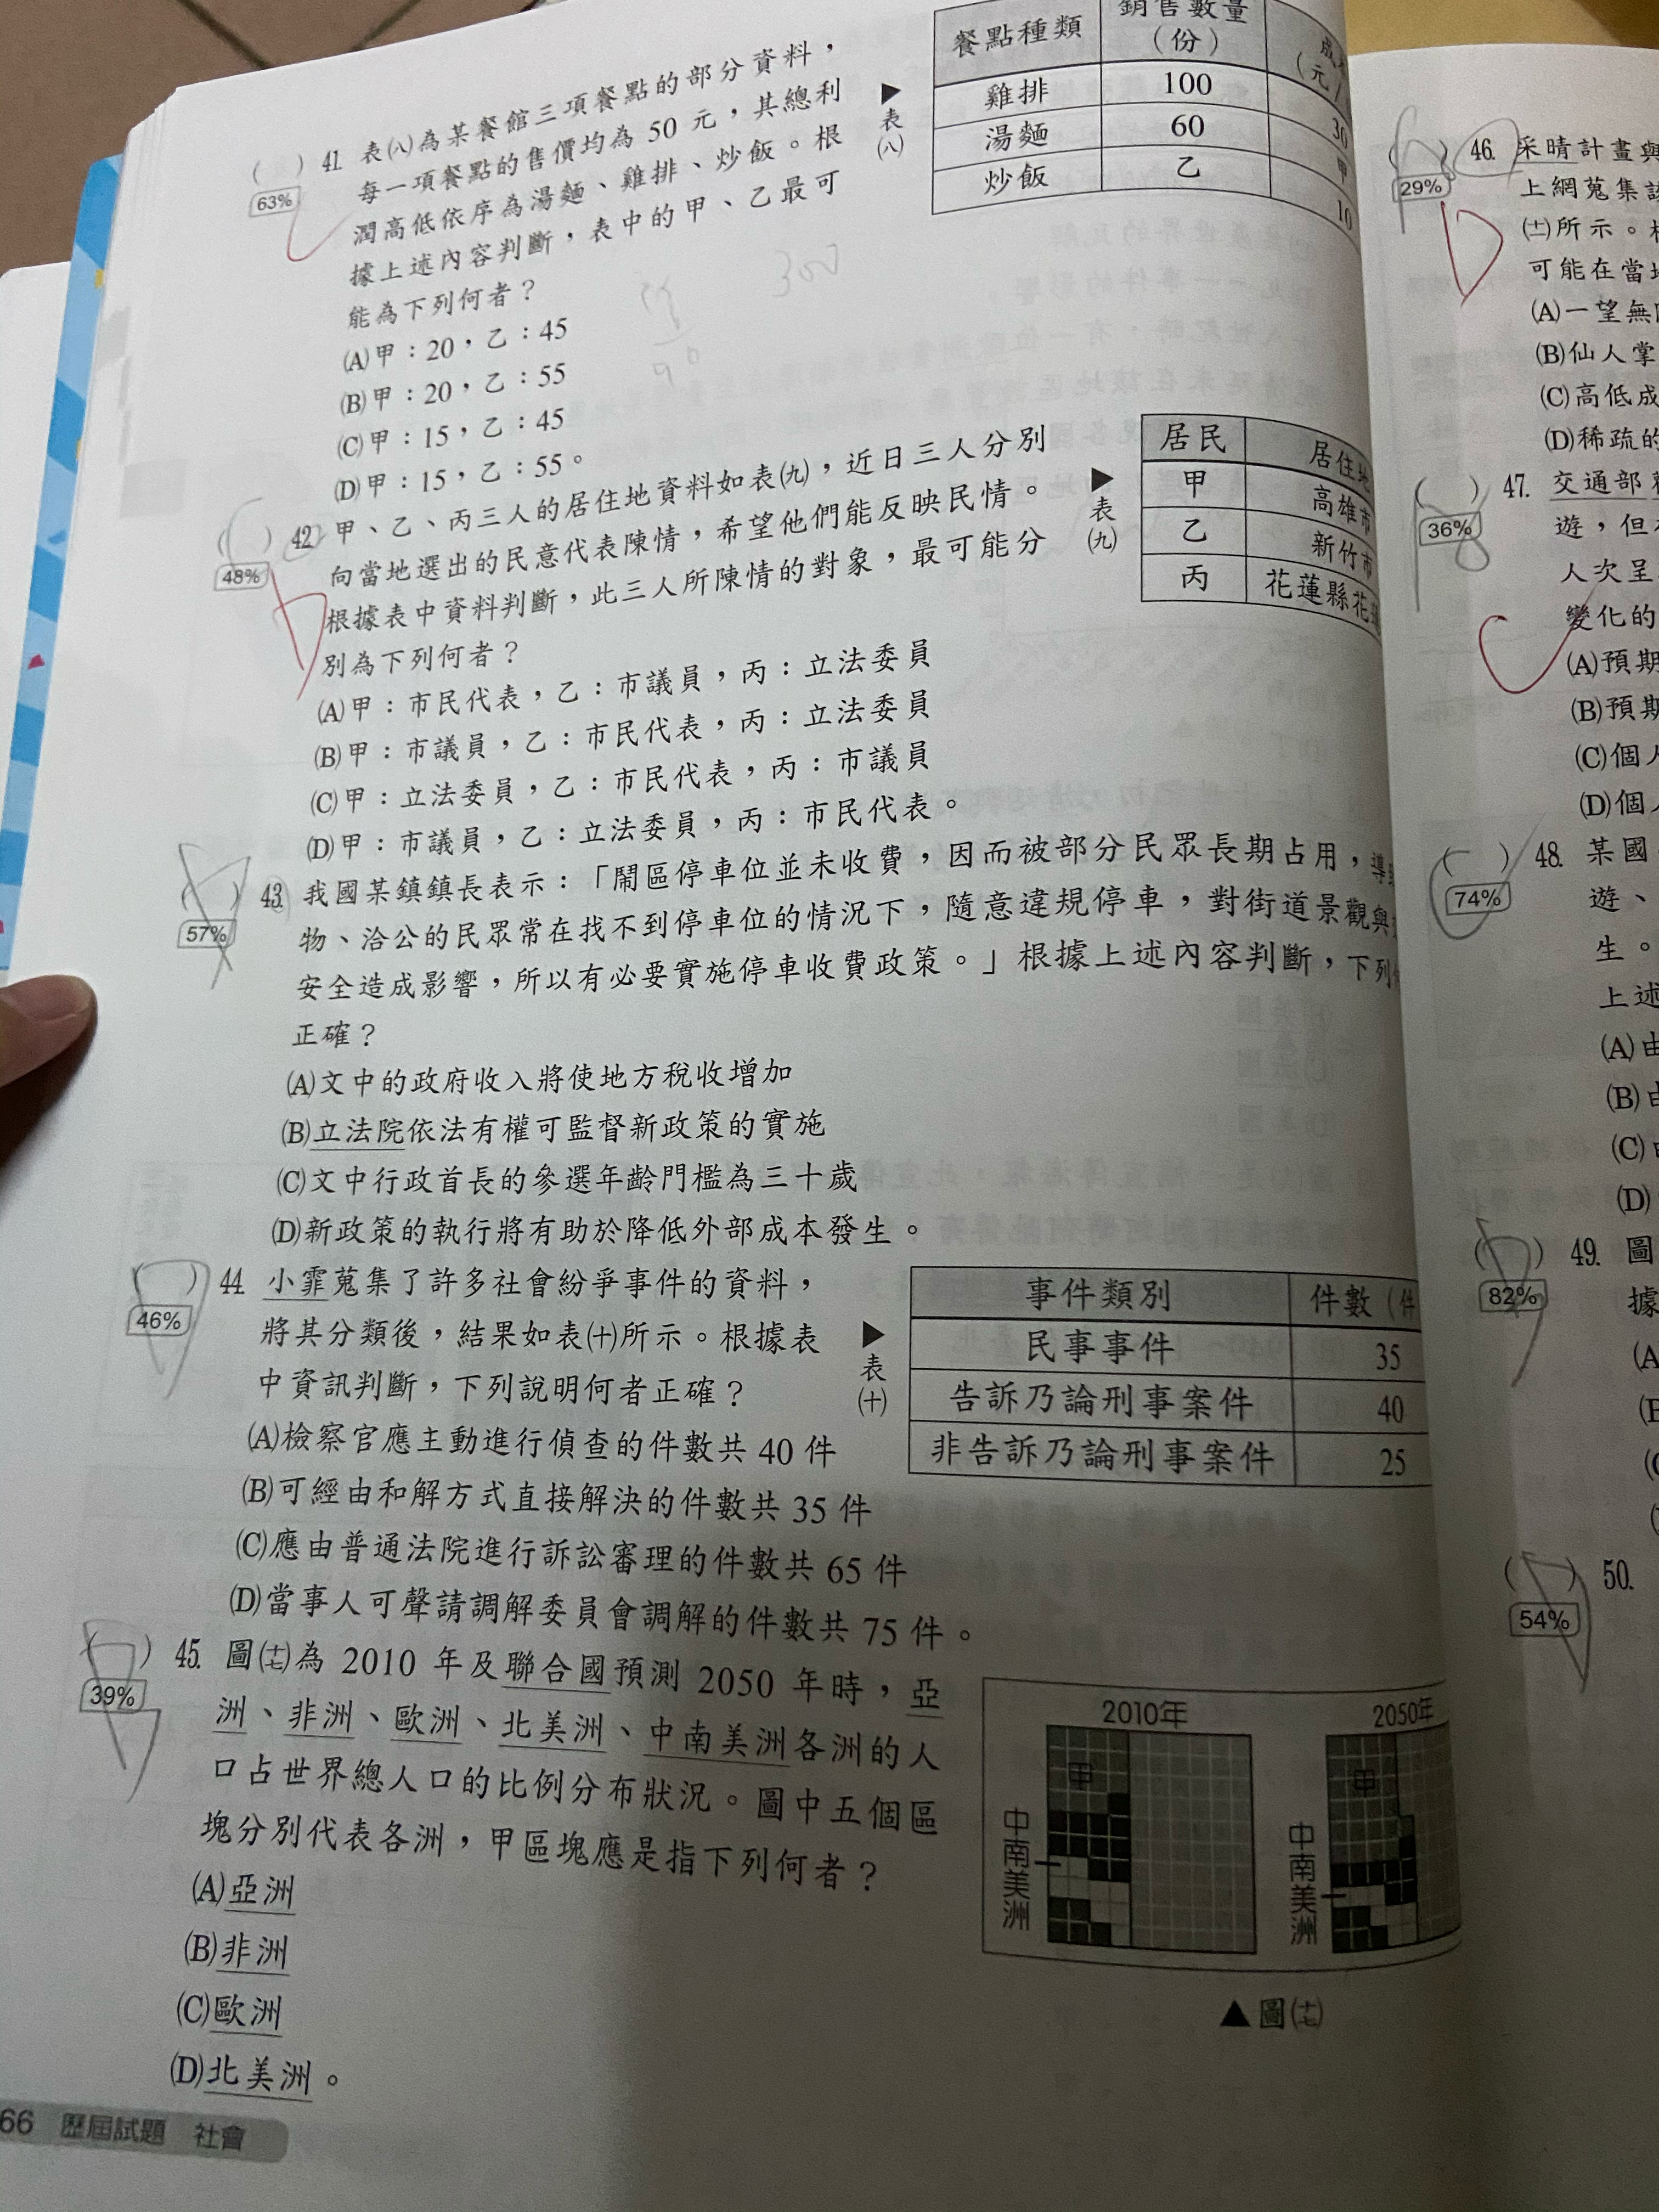 ( ) 41. 表㈧為某餐館三項餐點的部分資料，
63%
每一項餐點的售價均為 50 元，其總利
潤高低依序為湯麵、雞排、炒飯。根
據上述內容判斷，表中的甲、乙最可
能為下列何者？
(A)甲：20，乙：45
(B)甲：20，乙：55
(C)甲：15，乙：45
(D)甲：15，乙：55。
▶表㈧
餐點種類 銷售數量（份）
雞排 100 30
湯麵 60 甲
炒飯 乙 10
300
( ) 42. 甲、乙、丙三人的居住地資料如表㈨，近日三人分別
48%
向當地選出的民意代表陳情，希望他們能反映民情。
根據表中資料判斷，此三人所陳情的對象，最可能分
別為下列何者？
(A)甲：市民代表，乙：市議員，丙：立法委員
(B)甲：市議員，乙：市民代表，丙：立法委員
(C)甲：立法委員，乙：市民代表，丙：市議員
(D)甲：市議員，乙：立法委員，丙：市民代表。
▶表㈨
居民 居住地
甲 高雄市
乙 新竹市
丙 花蓮縣花
( ) 43. 我國某鎮鎮長表示：「鬧區停車位並未收費，因而被部分民眾長期占用，導
57%
物、洽公的民眾常在找不到停車位的情況下，隨意違規停車，對街道景觀與
安全造成影響，所以有必要實施停車收費政策。」根據上述內容判斷，下列
正確？
(A)文中的政府收入將使地方稅收增加
(B)立法院依法有權可監督新政策的實施
(C)文中行政首長的參選年齡門檻為三十歲
(D)新政策的執行將有助於降低外部成本發生。
( ) 44. 小霏蒐集了許多社會紛爭事件的資料，
46%
將其分類後，結果如表㈩所示。根據表
中資訊判斷，下列說明何者正確？
(A)檢察官應主動進行偵查的件數共 40 件
(B)可經由和解方式直接解決的件數共 35 件
(C)應由普通法院進行訴訟審理的件數共 65 件
(D)當事人可聲請調解委員會調解的件數共 75 件。
▶表㈩
事件類別 件數（件
民事事件 35
告訴乃論刑事案件 40
非告訴乃論刑事案件 25
( ) 45. 圖(十七)為 2010 年及聯合國預測 2050 年時，亞
39%
洲、非洲、歐洲、北美洲、中南美洲各洲的人
口占世界總人口的比例分布狀況。圖中五個區
塊分別代表各洲，甲區塊應是指下列何者？
(A)亞洲
(B)非洲
(C)歐洲
(D)北美洲。
2010年
甲
中南美洲
2050年
甲
中南美洲
▲圖(十七)
66 歷屆試題 社會
( ) 46. 采晴計畫與
29%
上網蒐集該
(十一)所示。
可能在當地
(A)一望無
(B)仙人掌
(C)高低成
(D)稀疏的
( ) 47. 交通部
36%
遊，但
人次呈
變化的
(A)預期
(B)預期
(C)個人
(D)個
( ) 48. 某國
74%
遊、
生。
上述
(A)由
(B)由
(C)由
(D)
( ) 49. 圖
82%
據
( ) 50.
54%